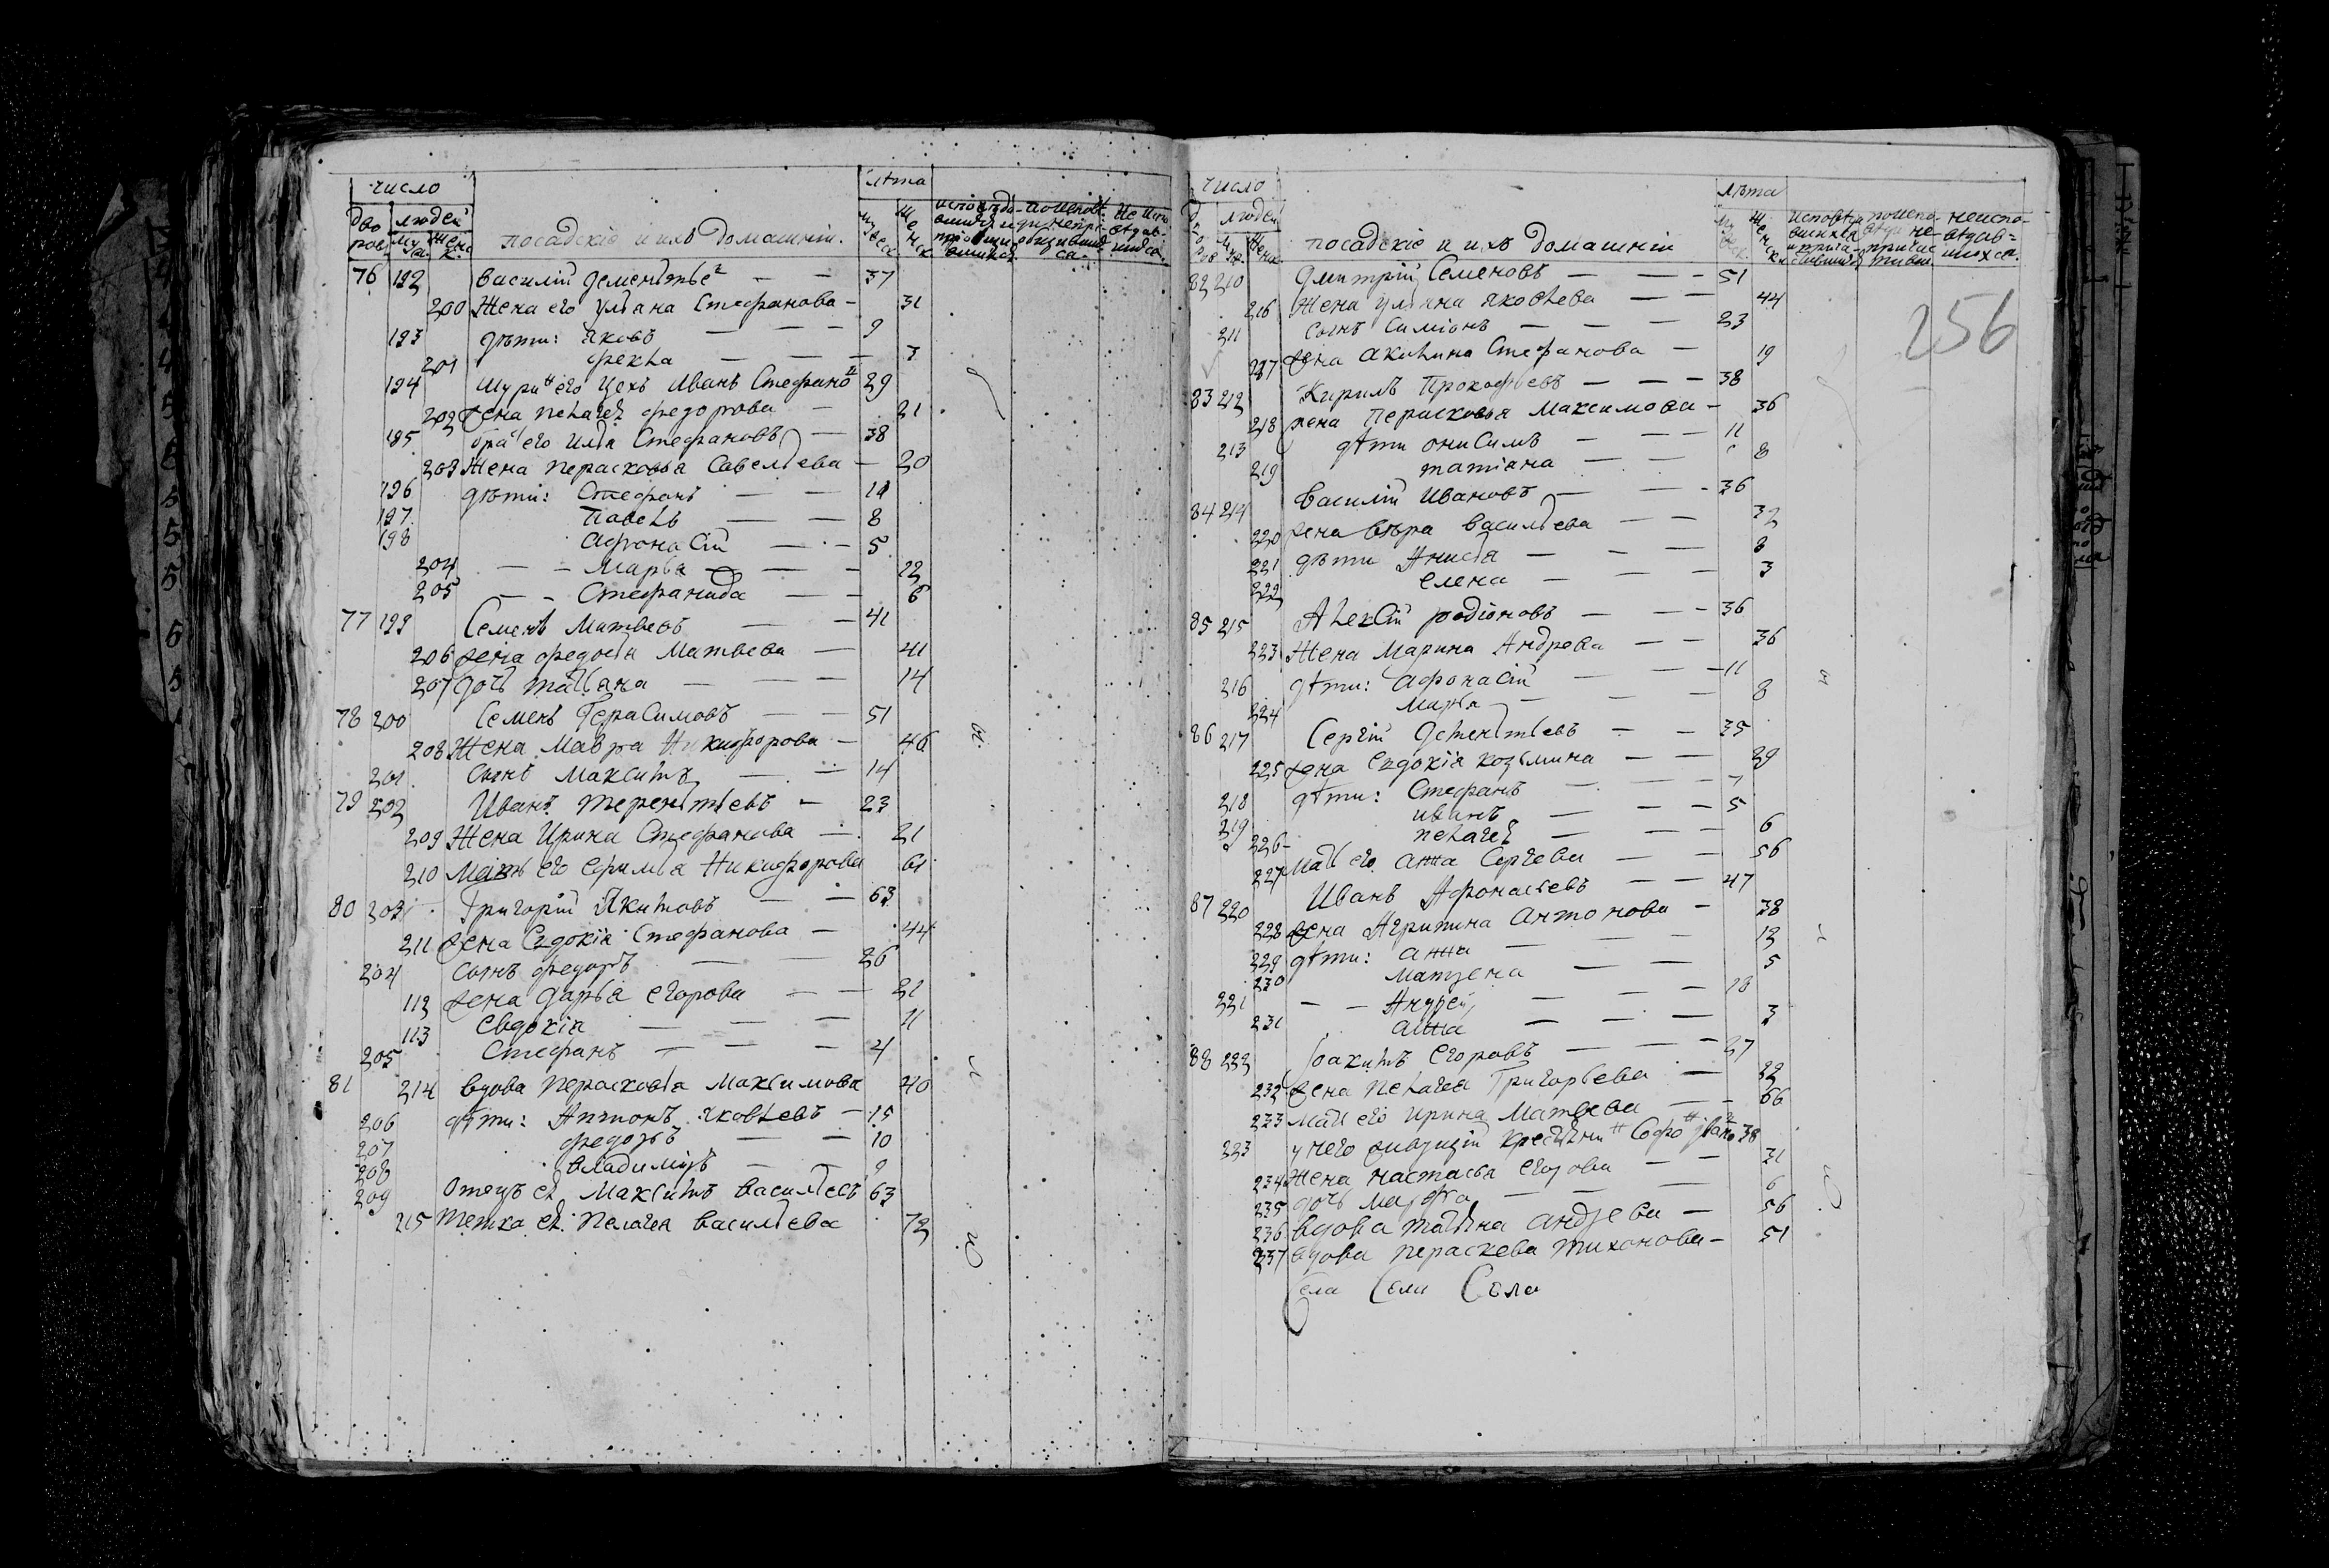 число лѣта
дво ровъ людей муж. женск. посадскіе и ихъ домашніи. мужеск. женск.
76 192 Василій Дементьев 37
200 Жена его Ульяна Стефанова 31
193 дѣти: Яковъ 9
201 Фекла 3
194 Шуринъ его Иванъ Стефанов 29
202 Жена Пелагея Федорова 21
195 братъ его Илья Стефановъ 38
203 Жена Перасковья Савельева 20
196 дѣти: Стефанъ 14
197 Павелъ 8
198 Афонасій 5
204 Марья 12
205 Стефанида 6
77 199 Семенъ Матвеевъ 41
206 жена Федосья Матвеева 41
207 дочь Татьяна 14
78 200 Семенъ Герасимовъ 51
208 Жена Мавра Никифорова 46
201 Сынъ Максимъ 14
79 202 Иванъ Терентьевъ 23
209 Жена Ирина Стефанова 21
210 Мать его Ефимья Никифорова 61
80 203 Григорій Якимовъ 63
211 жена Евдокія Стефанова 44
204 Сынъ Федоръ 26
112 жена Дарья Егорова 21
113 Евдокія 11
205 Стефанъ 4
81 214 вдова Перасковья Максимова 40
206 дѣти: Антонъ Яковлевъ 15
207 Федоръ 10
208 Владимиръ 9
209 Отецъ ея Максимъ Васильевъ 63
215 Тетка ея Пелагея Васильева 72
число лѣта
людей посадскіе и ихъ домашніи
256
82 210 Дмитрій Семеновъ 51
216 Жена Ульяна Яковлева 44
211 Сынъ Симіонъ 23
217 жена Акилина Стефанова 19
83 212 Кирилъ Прокофьевъ 38
218 жена Перасковья Максимова 36
213 дѣти Онисимъ 11
219 Татіана 8
84 214 Василій Ивановъ 36
220 жена Вѣра Васильева 32
221 дѣти Анисья 8
222 Елена 3
85 215 Алексій Родіоновъ 36
223 Жена Марина Андреева 36
216 дѣти: Афонасій 11
224 Марья 8
86 217 Сергій Дементьевъ 35
225 жена Евдокія Козьмина 29
218 дѣти: Стефанъ 7
219 Иванъ 5
226 Пелагея 6
227 Мать его Анна Сергеева 56
87 220 Иванъ Афонасьевъ 47
228 жена Агрипина Антонова 38
229 дѣти: Анна 12
230 Матрена 5
221 Андрей 10
231 Анна 3
88 222 Іоакимъ Егоровъ 27
232 жена Пелагея Григорьева 22
233 Мать его Ирина Матвеева 66
223 у него живущій крестьянин Софон Иванов 38
234 Жена Настасья Егорова 31
235 дочь Марфа 6
236 вдова Татьяна Андреева 56
237 вдова Параскева Тихонова 51
Села Соли Села